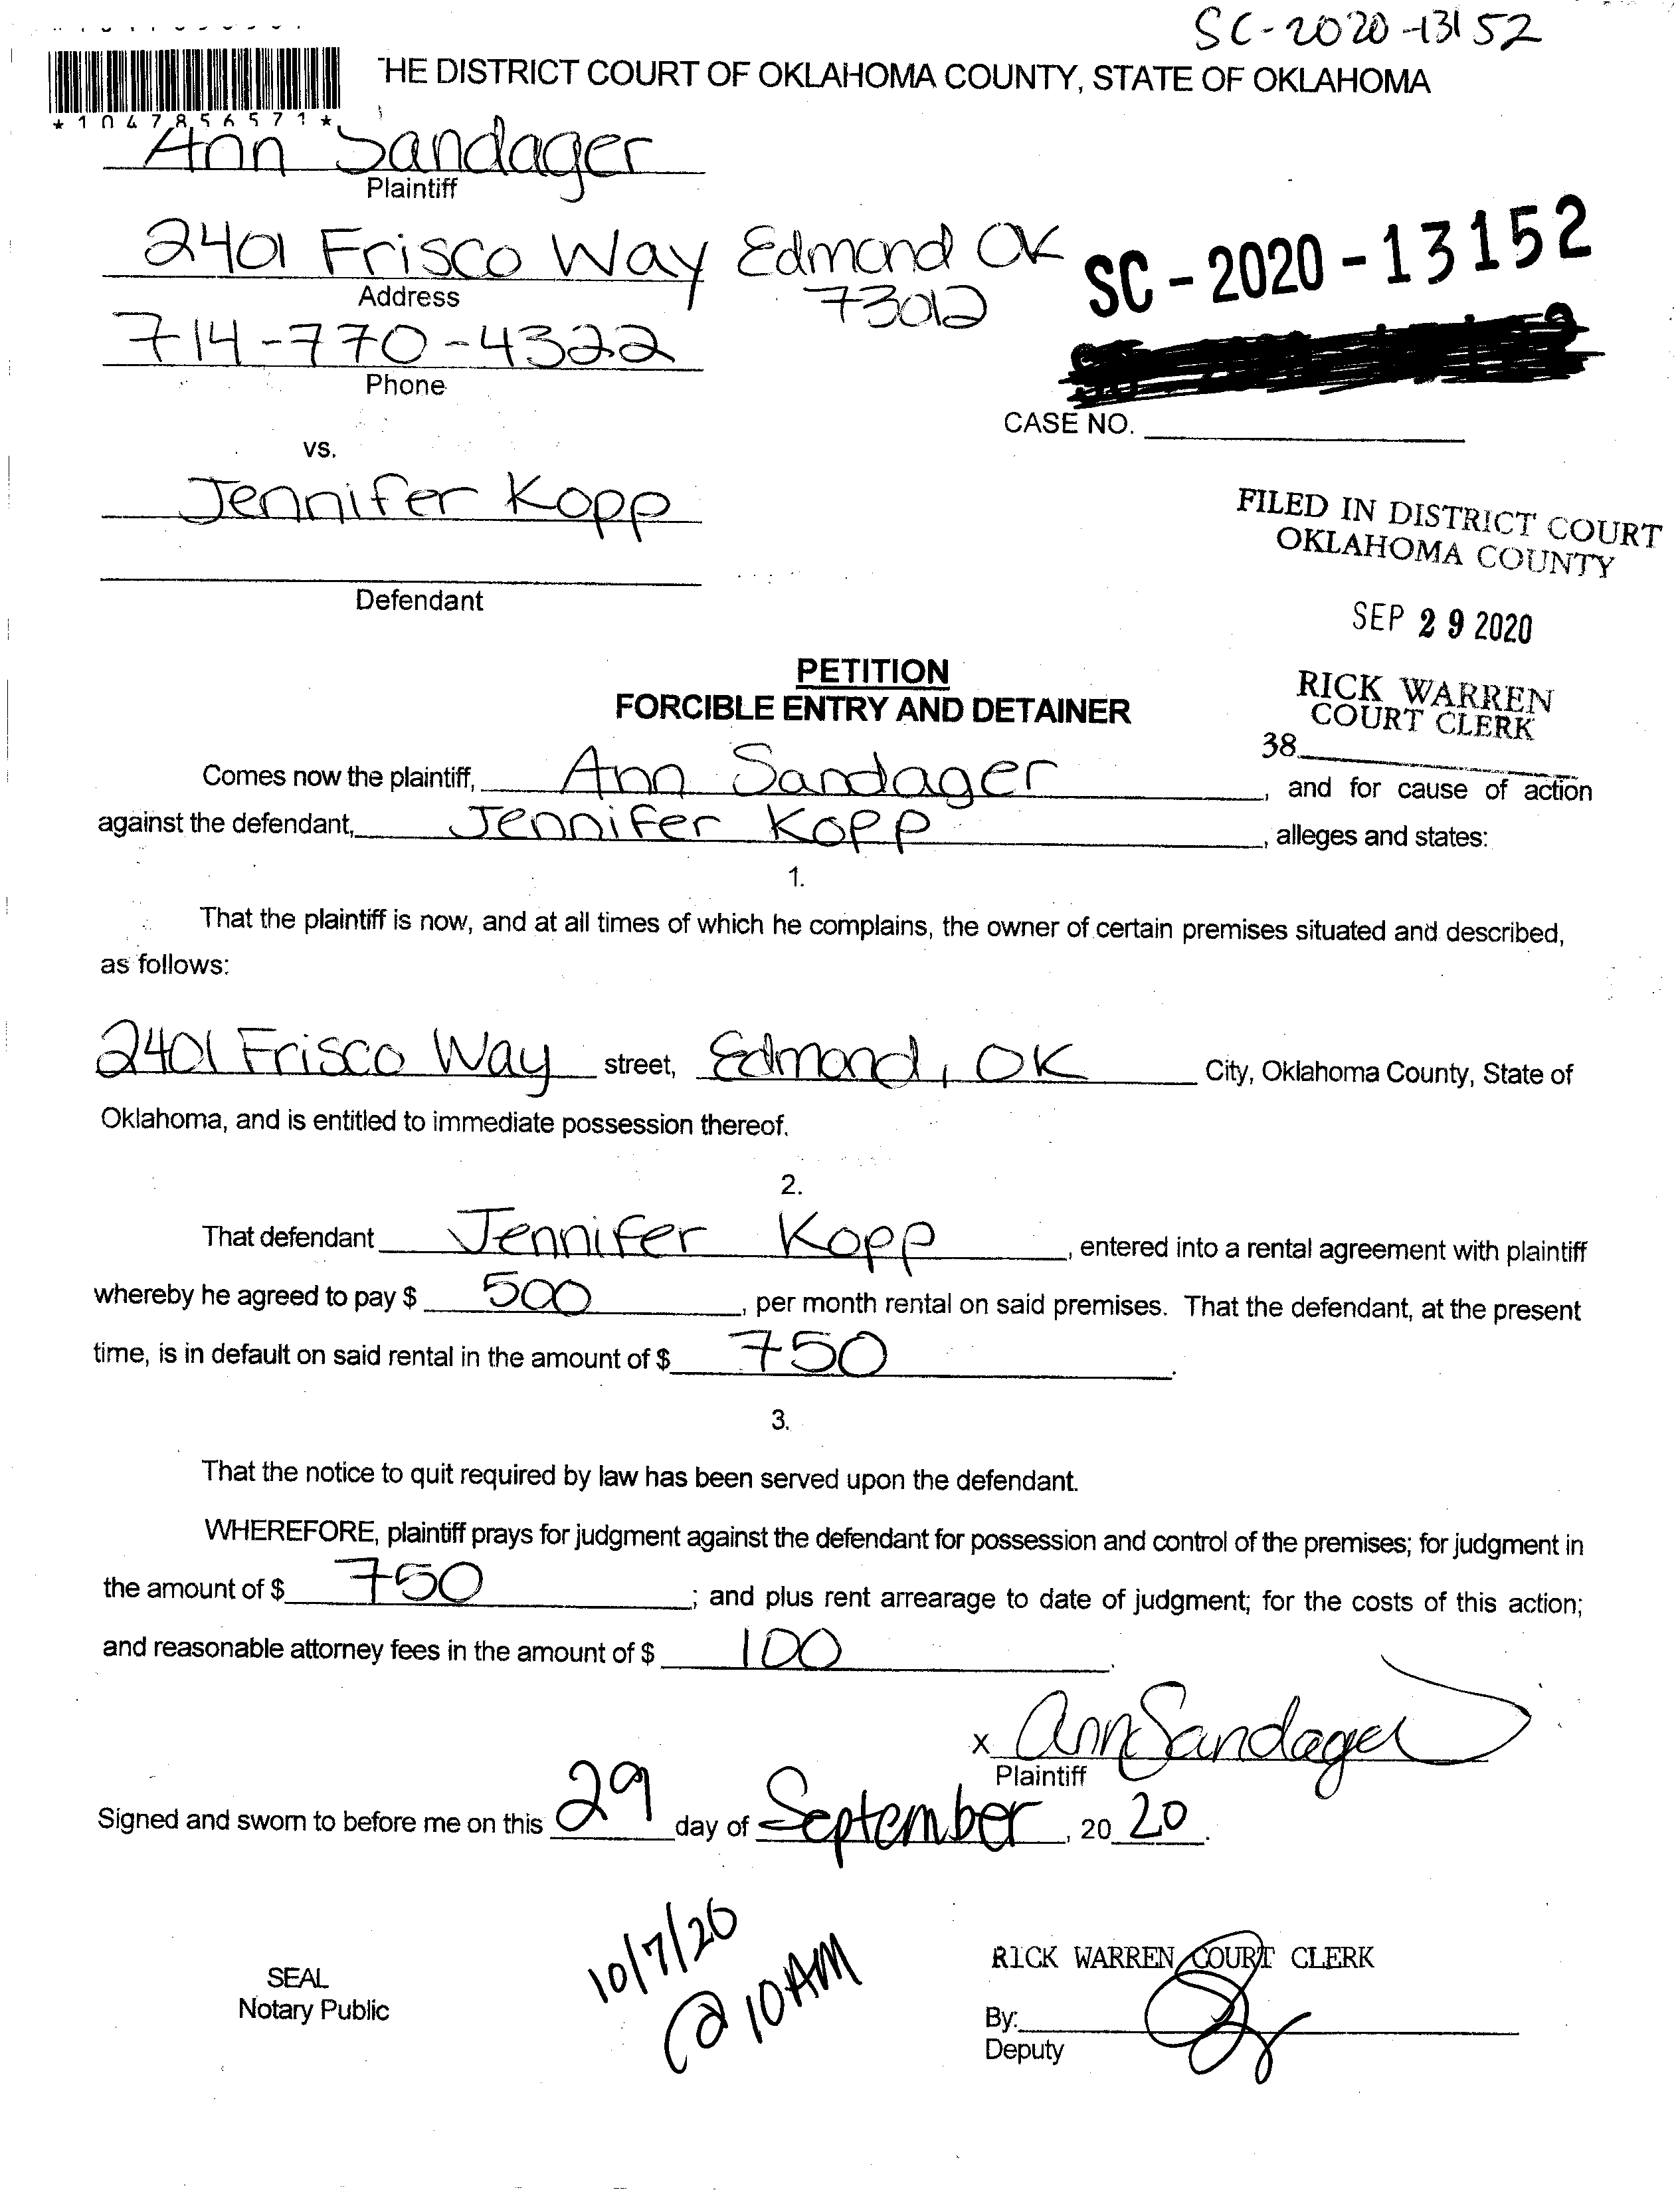 SC-2020-13152
HE DISTRICT COURT OF OKLAHOMA COUNTY, STATE OF OKLAHOMA
*1047856571*
Ann Sandager
Plaintiff
2401 Frisco Way Edmond OK
73012
Address
SC-2020-13152
714-770-4322
Phone
CASE NO.
vs.
Jennifer Kopp
FILED IN DISTRICT COURT
OKLAHOMA COUNTY
Defendant
SEP 29 2020
PETITION
FORCIBLE ENTRY AND DETAINER
RICK WARREN
COURT CLERK
38
Comes now the plaintiff, Ann Sandager, and for cause of action
against the defendant, Jennifer Kopp, alleges and states:
1.
That the plaintiff is now, and at all times of which he complains, the owner of certain premises situated and described,
as follows:
2401 Frisco Way street, Edmond, OK City, Oklahoma County, State of
Oklahoma, and is entitled to immediate possession thereof.
2.
That defendant Jennifer Kopp, entered into a rental agreement with plaintiff
whereby he agreed to pay $ 500, per month rental on said premises. That the defendant, at the present
time, is in default on said rental in the amount of $ 750.
3.
That the notice to quit required by law has been served upon the defendant.
WHEREFORE, plaintiff prays for judgment against the defendant for possession and control of the premises; for judgment in
the amount of $ 750; and plus rent arrearage to date of judgment; for the costs of this action;
and reasonable attorney fees in the amount of $ 100.
x Ann Sandager
Plaintiff
Signed and sworn to before me on this 29 day of September, 20 20.
10/7/20
@ 10AM
RICK WARREN COURT CLERK
SEAL
Notary Public
By:
Deputy